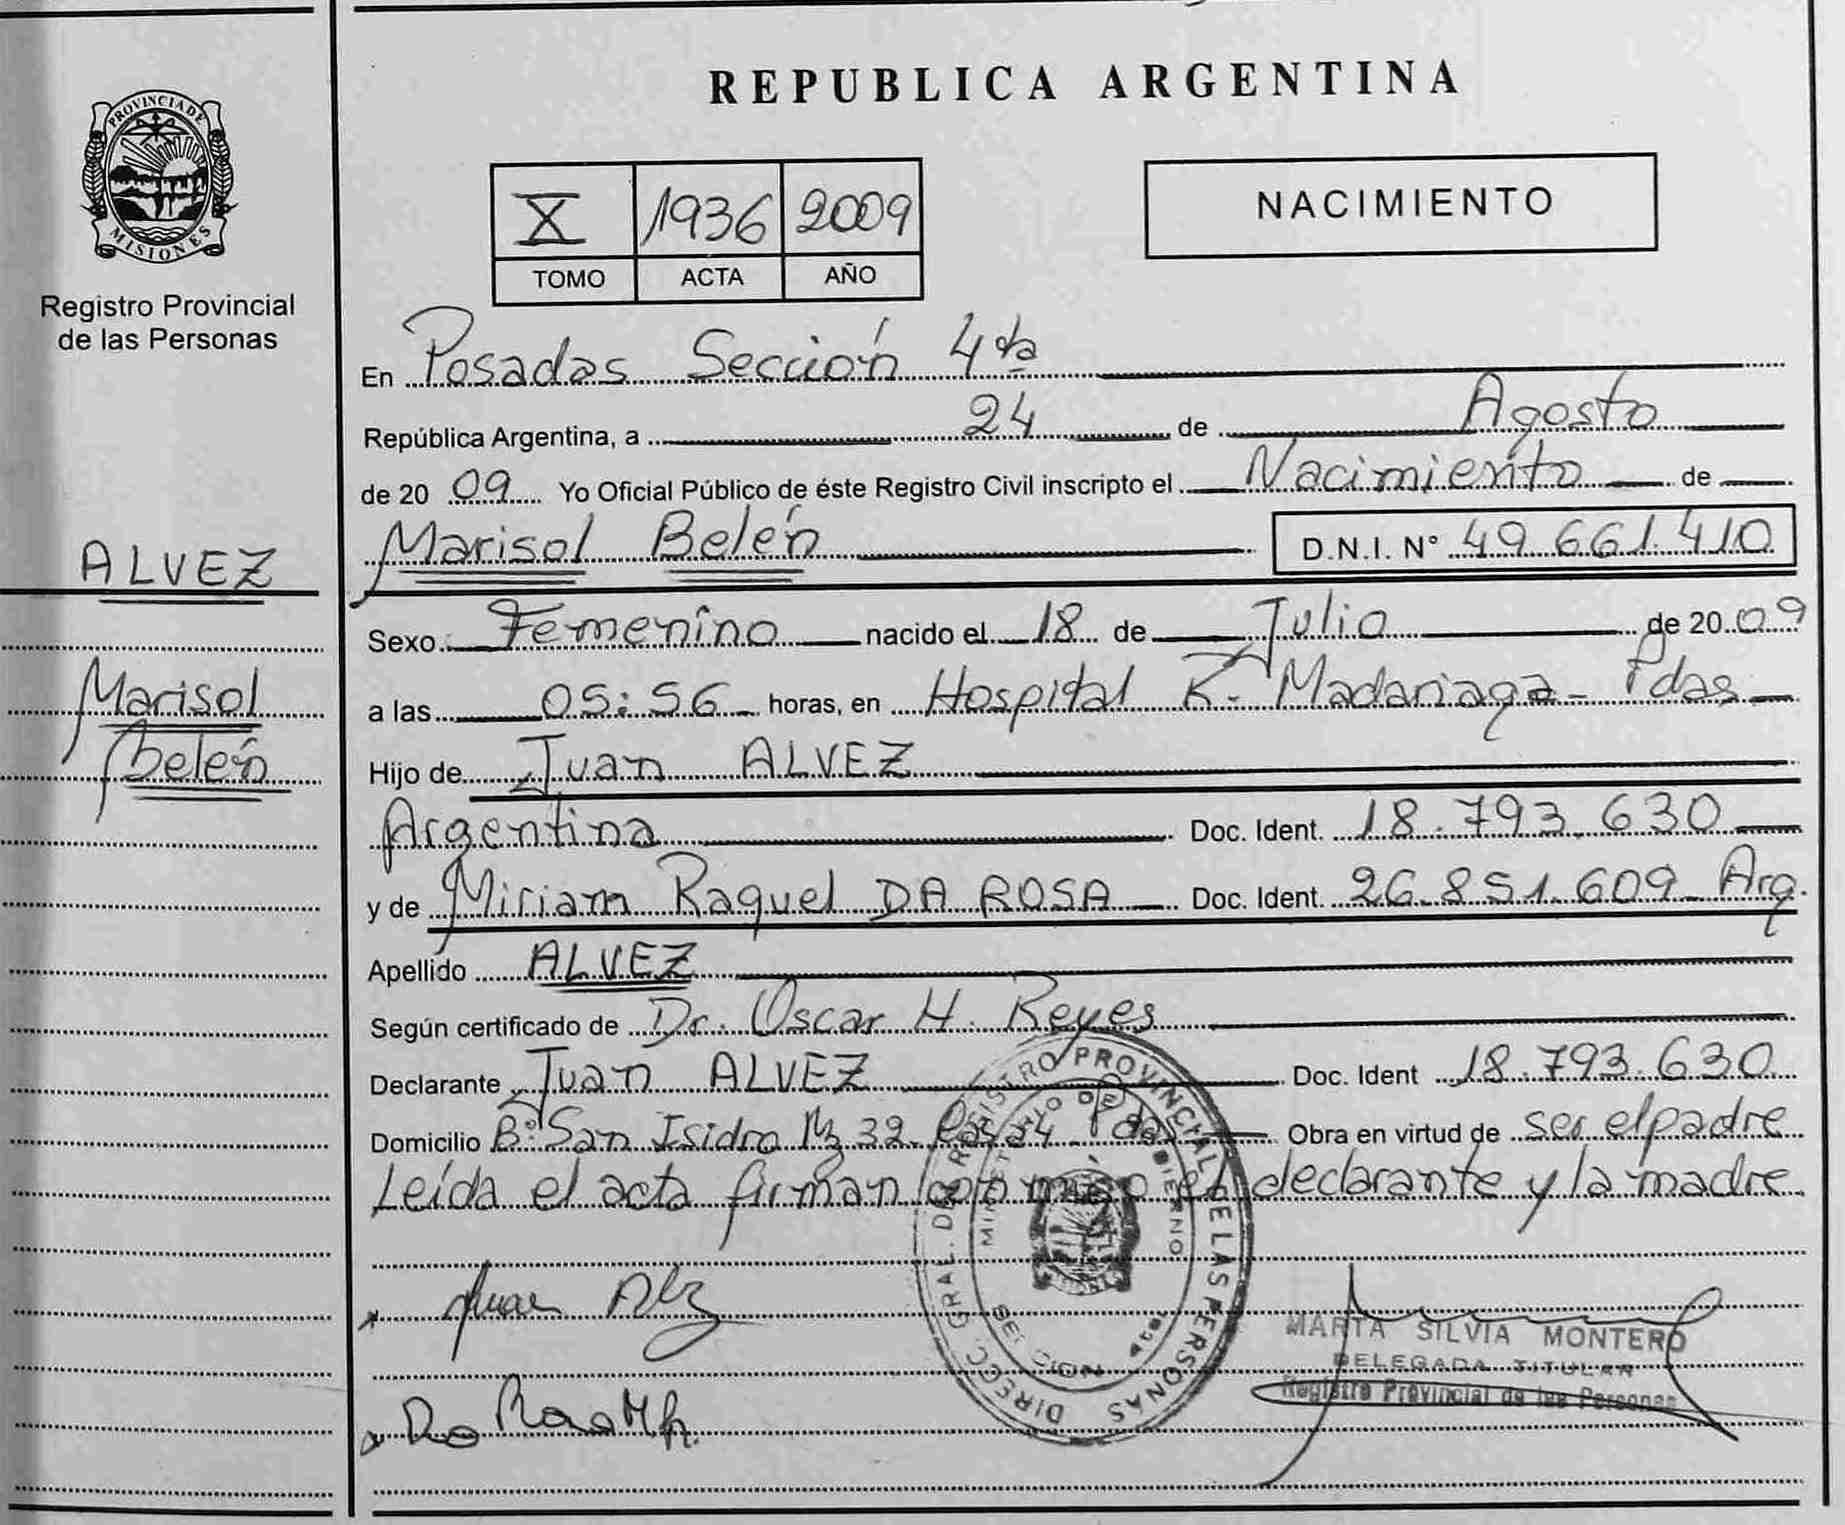 PROVINCIA DE
MISIONES
Registro Provincial
de las Personas
ALVEZ
Marisol
Belén
REPUBLICA ARGENTINA
X 1936 2009
TOMO ACTA AÑO
NACIMIENTO
En Posadas Sección 4ta
República Argentina, a 24 de Agosto
de 20 09 Yo Oficial Público de éste Registro Civil inscripto el Nacimiento de
Marisol Belén D.N.I. N° 49.661.410
Sexo: Femenino nacido el 18 de Julio de 20 09
a las 05:56 horas, en Hospital R. Madariaga - Pdas
Hijo de Juan ALVEZ
Argentina Doc. Ident. 18.793.630
y de Miriam Raquel DA ROSA Doc. Ident. 26.851.609 Arg.
Apellido ALVEZ
Según certificado de Dr. Oscar H. Reyes
Declarante Juan ALVEZ Doc. Ident 18.793.630
Domicilio B° San Isidro Mz 32 Pdas Obra en virtud de ser el padre
Leída el acta firman conmigo el declarante y la madre
DIRECC. GRAL. DE REGISTRO PROVINCIAL DE LAS PERSONAS
MINISTERIO DE GOBIERNO
SECCION 4ta
Juan Alz
MARTA SILVIA MONTERO
DELEGADA TITULAR
Registro Provincial de las Personas